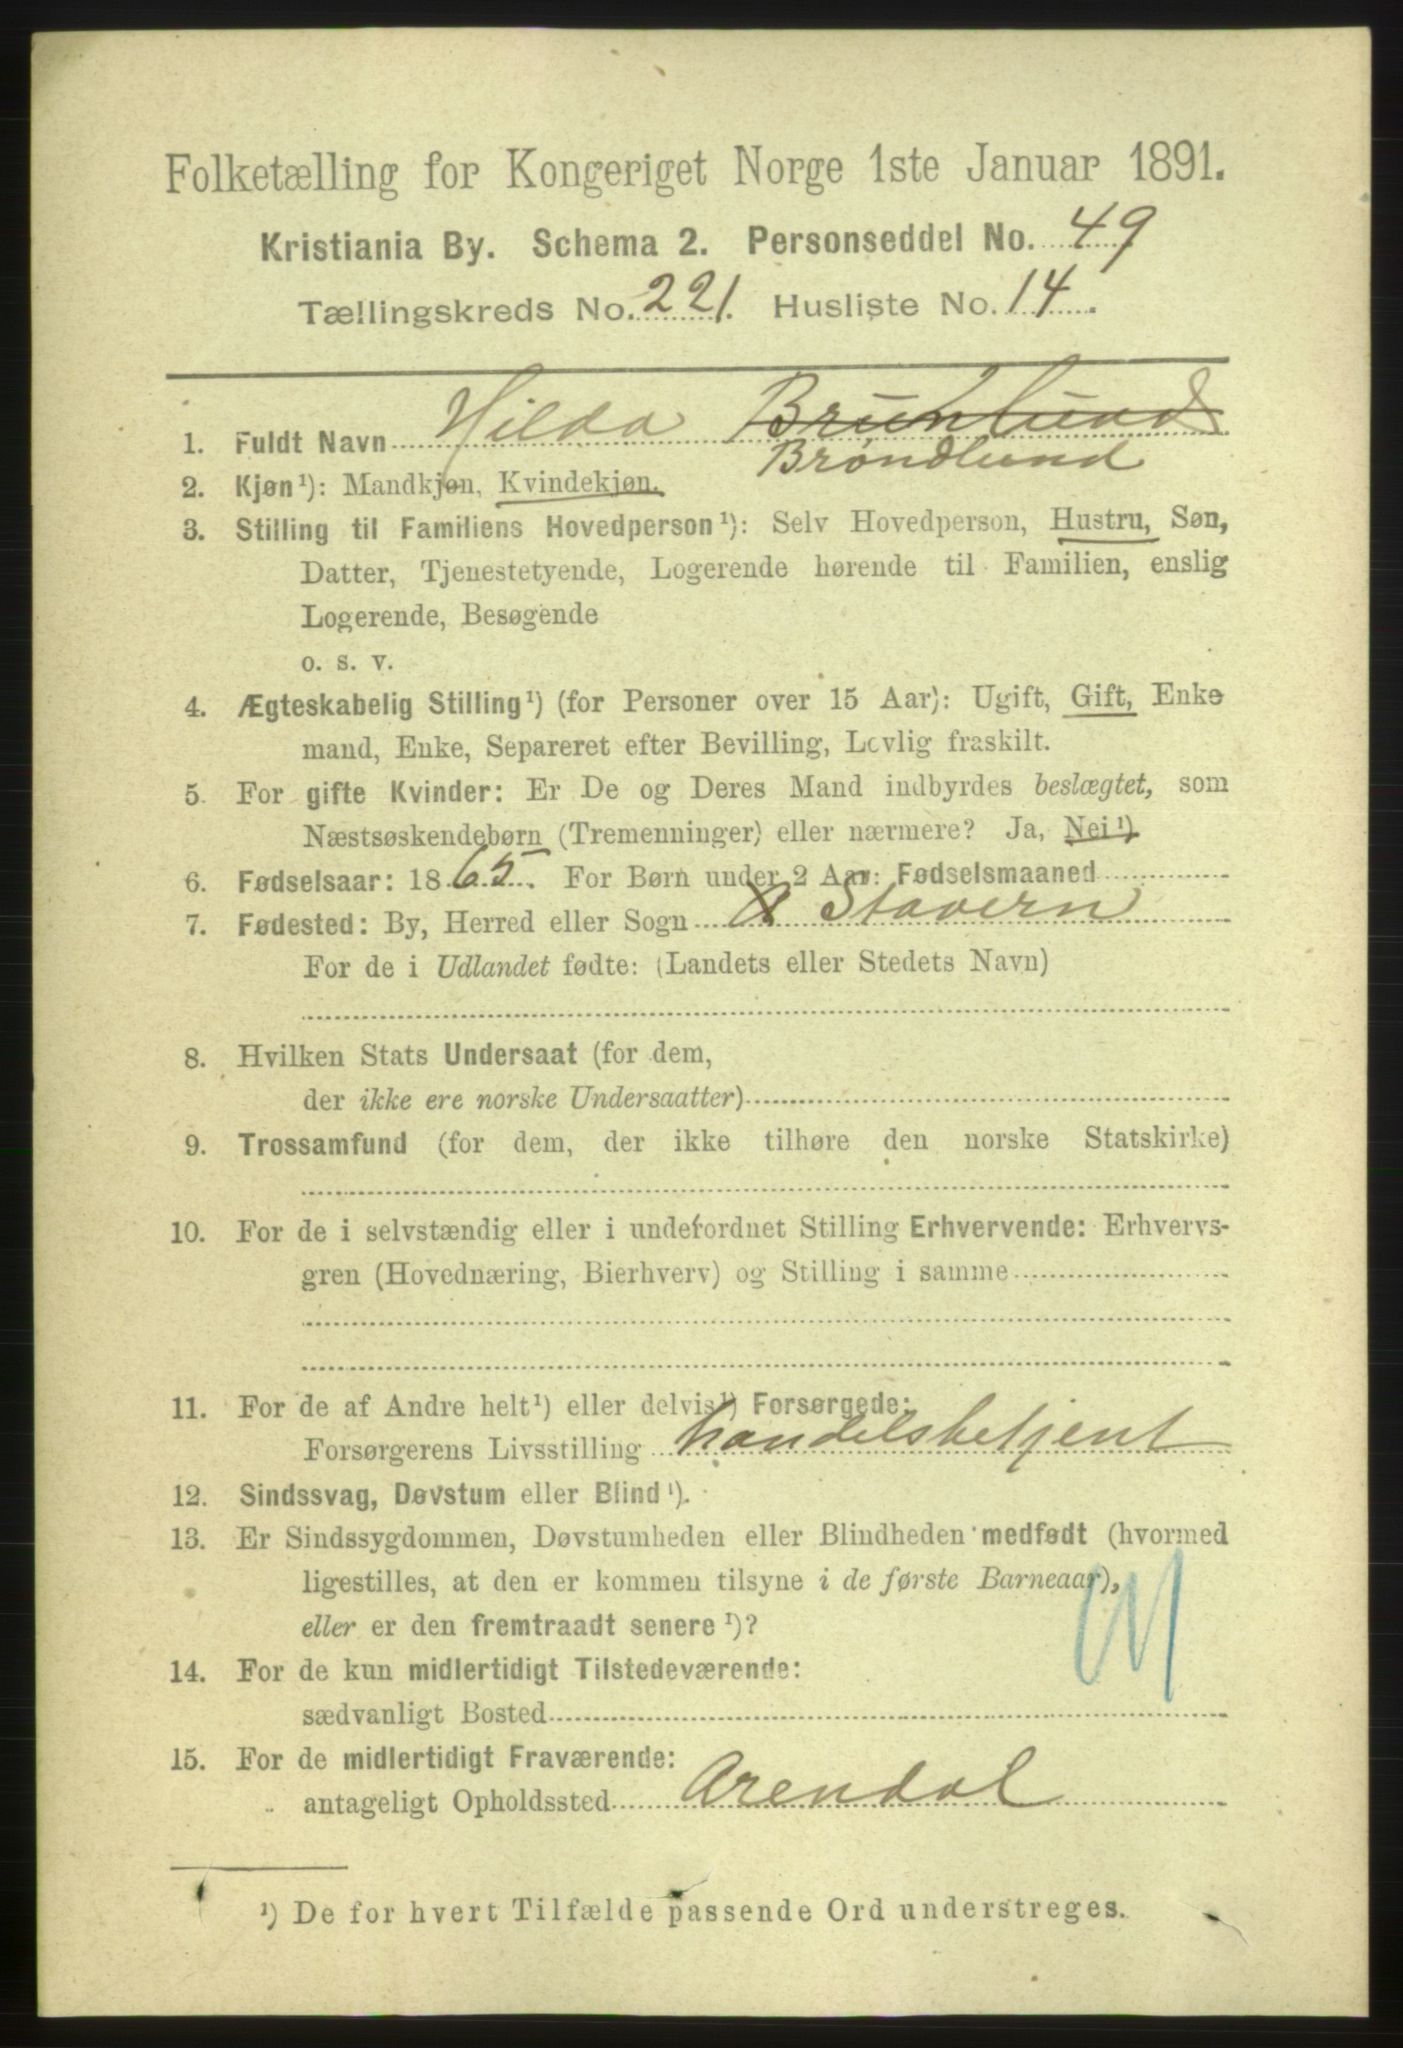 Folketælling for Kongeriget Norge 1ste Januar 1891.
Kristiania By. Schema 2. Personseddel No. 49
Tællingskreds No. 221. Husliste No. 14.
1. Fuldt Navn Hilda Brunlund
Brøndlund
2. Kjøn¹): Mandkjøn, Kvindekjøn.
3. Stilling til Familiens Hovedperson¹): Selv Hovedperson, Hustru, Søn,
Datter, Tjenestetyende, Logerende hørende til Familien, enslig
Logerende, Besøgende
o. s. v.
4. Ægteskabelig Stilling¹) (for Personer over 15 Aar): Ugift, Gift, Enke
mand, Enke, Separeret efter Bevilling, Lovlig fraskilt.
5. For gifte Kvinder: Er De og Deres Mand indbyrdes beslægtet, som
Næstsøskendebørn (Tremenninger) eller nærmere? Ja, Nei¹)
6. Fødselsaar: 1865. For Børn under 2 Aar: Fødselsmaaned
7. Fødested: By, Herred eller Sogn Stavern
For de i Udlandet fødte: (Landets eller Stedets Navn)
8. Hvilken Stats Undersaat (for dem,
der ikke ere norske Undersaatter)
9. Trossamfund (for dem, der ikke tilhøre den norske Statskirke)
10. For de i selvstændig eller i underordnet Stilling Erhvervende: Erhvervs-
gren (Hovednæring, Bierhverv) og Stilling i samme
11. For de af Andre helt¹) eller delvis¹) Forsørgede:
Forsørgerens Livsstilling handelsbetjent
12. Sindssvag, Døvstum eller Blind¹).
13. Er Sindssygdommen, Døvstumheden eller Blindheden medfødt (hvormed
ligestilles, at den er kommen tilsyne i de første Barneaar),
eller er den fremtraadt senere¹)?
14. For de kun midlertidigt Tilstedeværende:
sædvanligt Bosted
15. For de midlertidigt Fraværende:
antageligt Opholdssted Arendal
¹) De for hvert Tilfælde passende Ord understreges.